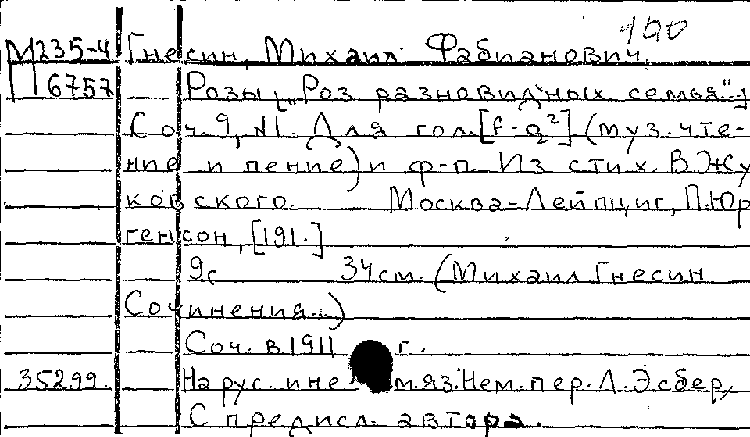 100
М235-4 Гнесин, Михаил Фабианович.
П 6757 Розы [„Роз разновидных семья"]
Соч. 9, №1. Для гол. [f-g²] (муз. чте-
ние и пение) и ф-п. Из стих. В. Жу
ковского. Москва-Лейпциг, П. Юр
генсон, [191.]
9с 34см. (Михаил Гнесин
Сочинения..)
Соч. в 1911 г.
35299. На рус. и не м. яз. Нем. пер. Л. Эсбер,
С предисл. автора.